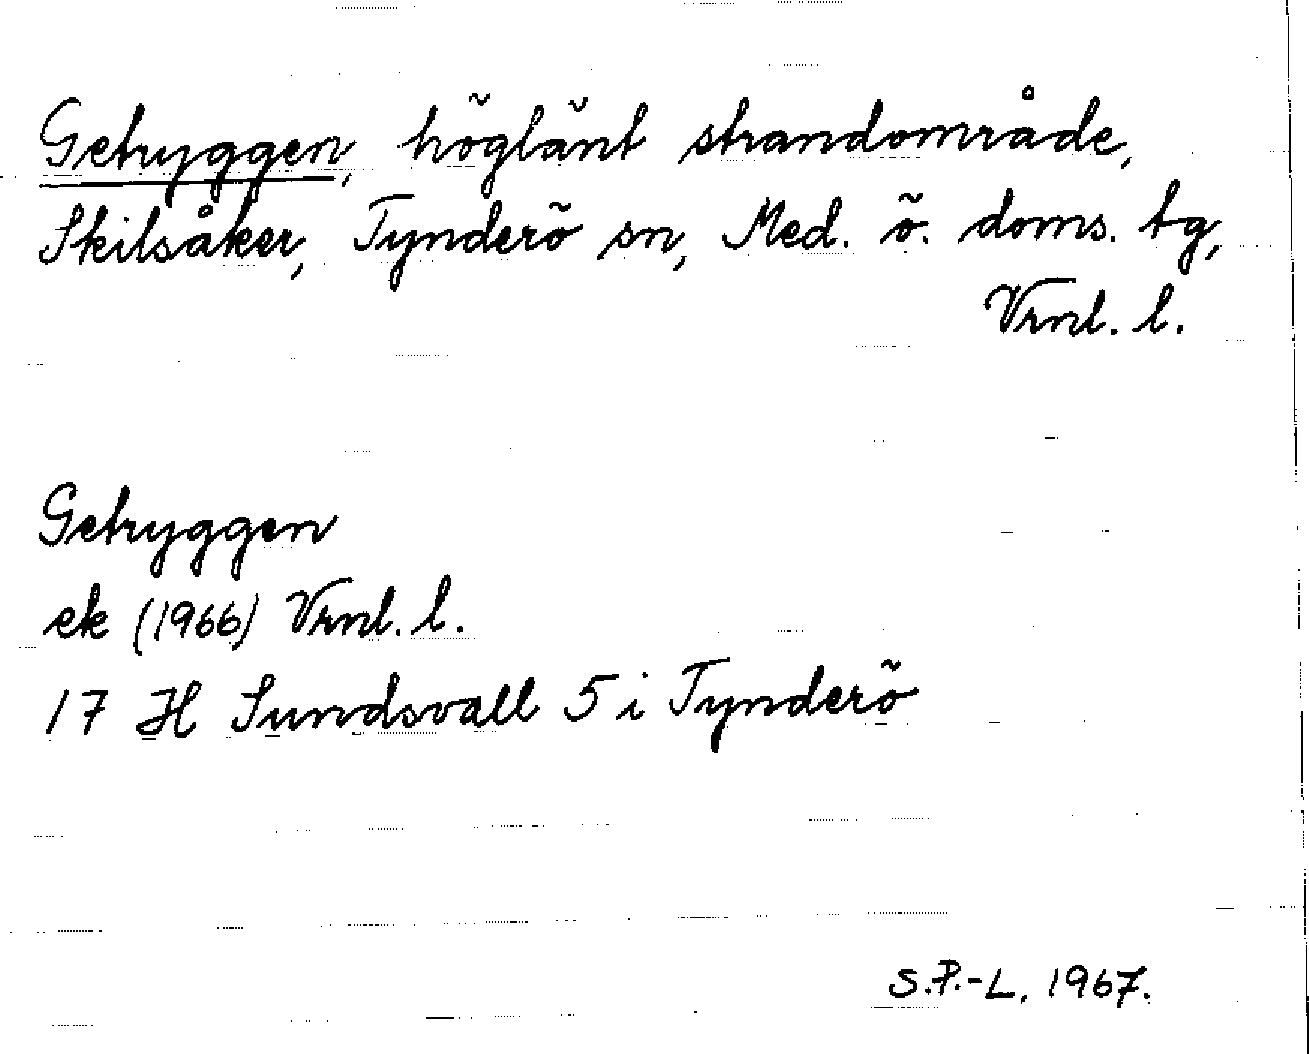 Getryggen, höglänt strandområde,
Skilsåker, Tynderö sn, Med. ö. doms. tg,
Vrnl. l.
Getryggen
ek (1966) Vrnl. l.
17 H Sundsvall 5 i Tynderö
S.P.-L. 1967.